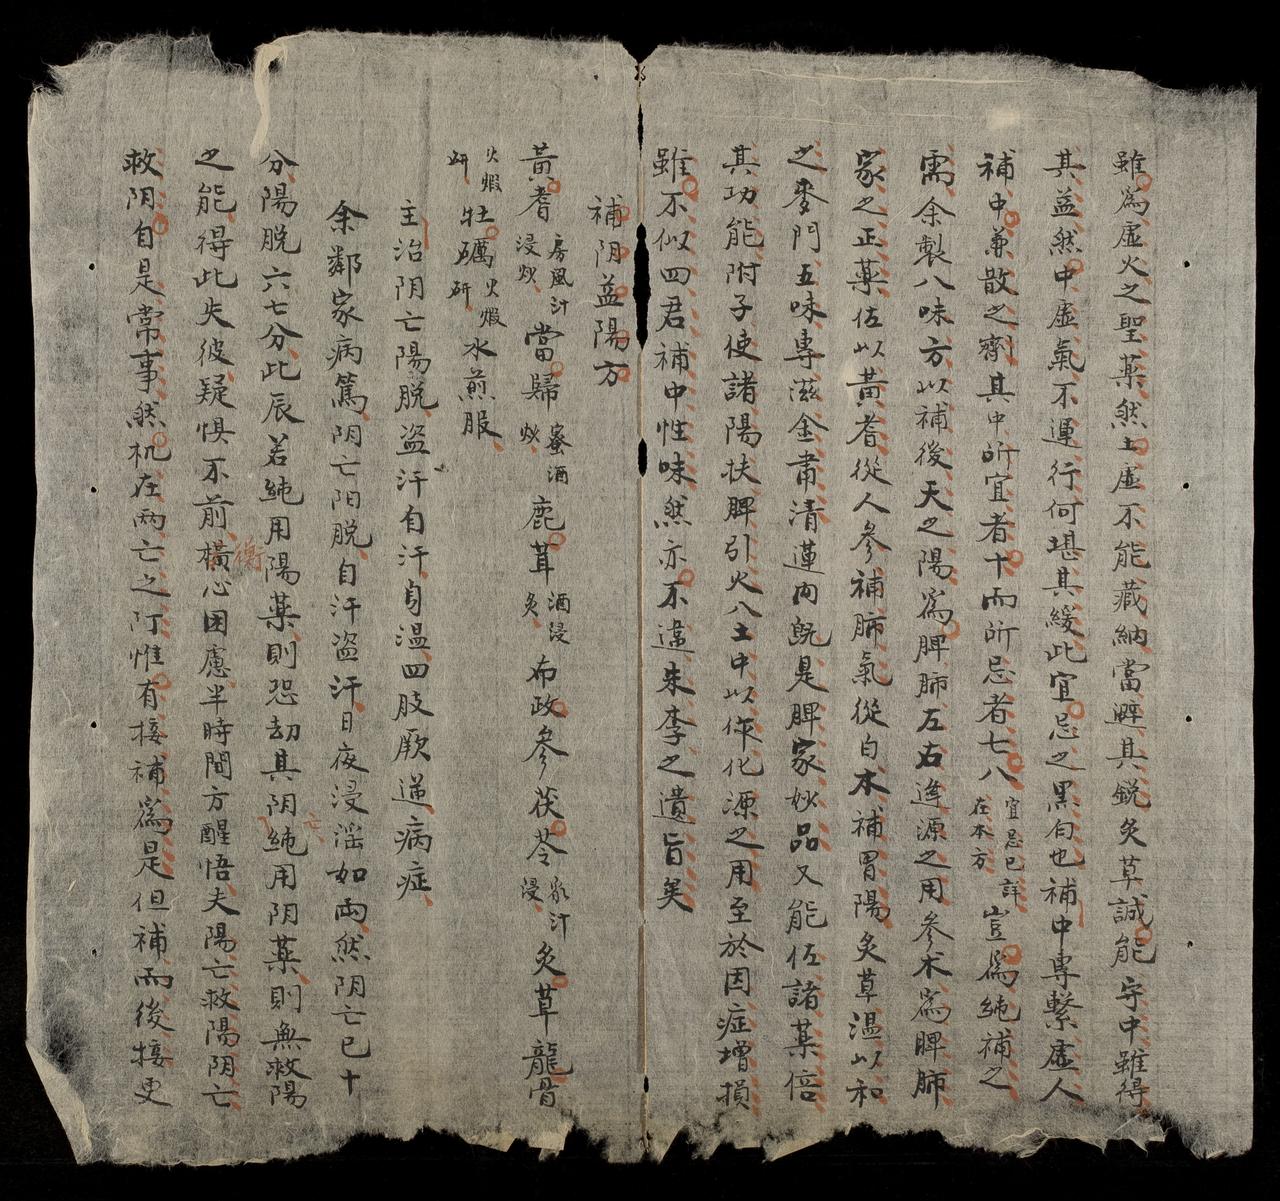 雖爲虛火之聖藥然土虛不能藏納當避其銳炙草誠能守中雖得
其益然中虛氣不運行何堪其緩此宜忌之黑白也補中專繫虛人
補中兼散之劑其中所宜者十而所忌者七八宜忌已詳在本方豈爲純補之
需余製八味方以補後天之陽爲脾肺左右逢源之用參朮爲脾肺
家之正藥佐以黃耆從人參補肺氣從白朮補胃陽炙草温以和
之麥門五味專滋金肅清蓮肉旣是脾家妙品又能佐諸藥倍
其功能附子使諸陽扶脾引火八土中以作化源之用至於因症增損
雖不似四君補中性味然亦不違朱李之遺旨矣
補阴益陽方
黃耆房風汁浸炒當歸蜜酒炒鹿茸酒浸炙布政參茯苓乳汁浸炙草龍骨
火煅研牡礪火煅研水煎服
主治阴亡陽脱盗汗自汗身温四肢厥逆病症
余鄰家病篤阴亡阳脱自汗盗汗日夜浸淫如雨然阴亡已十
分陽脱六七分此辰若純用陽藥則恐劫其阴純用阴藥則無救陽
之能得此失彼疑惧不前橫衡心困慮半時間方醒悟夫陽亡救陽阴亡
救阴自是常事然机在两亡之际惟有接補爲是但補而後接更